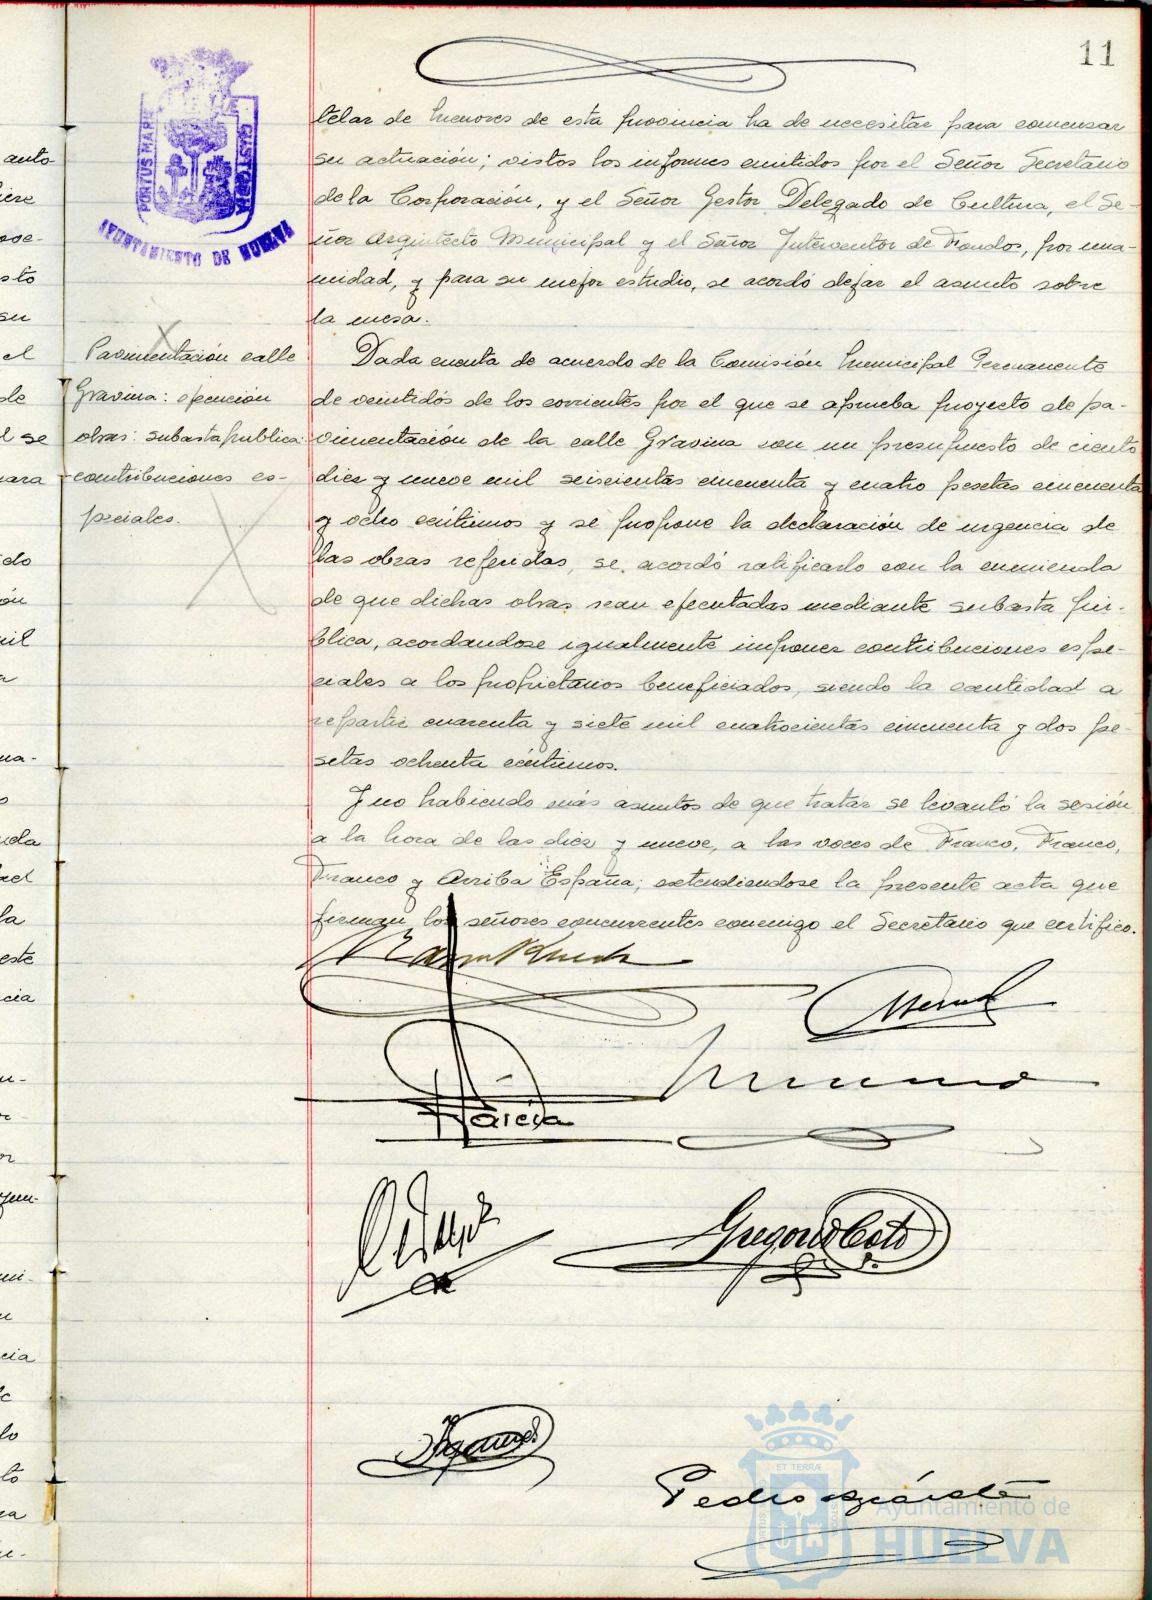 11
PORTUS MARIS ET TERRÆ CUSTODIA
AYUNTAMIENTO DE HUELVA
telar de menores de esta provincia ha de necesitar para comensar
su actuación; vistos los informes emitidos por el Señor Secretario
de la Corporación, y el Señor Gestor Delegado de Cultura, el Se-
ñor Arquitecto Municipal y el Señor Interventor de Fondos, por una-
nimidad, y para su mejor estudio, se acordó dejar el asunto sobre
la mesa.
Pavimentación calle
Gravina: ejecución
obras: subasta publica:
contribuciones es-
peciales.
Dada cuenta de acuerdo de la Comisión Municipal Permanente
de veintidós de los corrientes por el que se aprueba proyecto de pa-
vimentación de la calle Gravina con un presupuesto de ciento
diez y nueve mil seiscientas cincuenta y cuatro pesetas cincuenta
y ocho céntimos y se propone la declaración de urgencia de
las obras referidas, se acordó ratificarlo con la enmienda
de que dichas obras sean ejecutadas mediante subasta pú-
blica, acordandose igualmente imponer contribuciones espe-
ciales a los propietarios beneficiados, siendo la cantidad a
repartir cuarenta y siete mil cuatrocientas cincuenta y dos pe-
setas ochenta céntimos.
Y no habiendo más asuntos de que tratar se levantó la sesión
a la hora de las diez y nueve, a las voces de Franco, Franco,
Franco y Arriba España; extendiendose la presente acta que
firman los señores concurrentes conmigo el Secretario que certifico.
García
Gregorio Coto
Pedro
ET TERRÆ
Ayuntamiento de
HUELVA